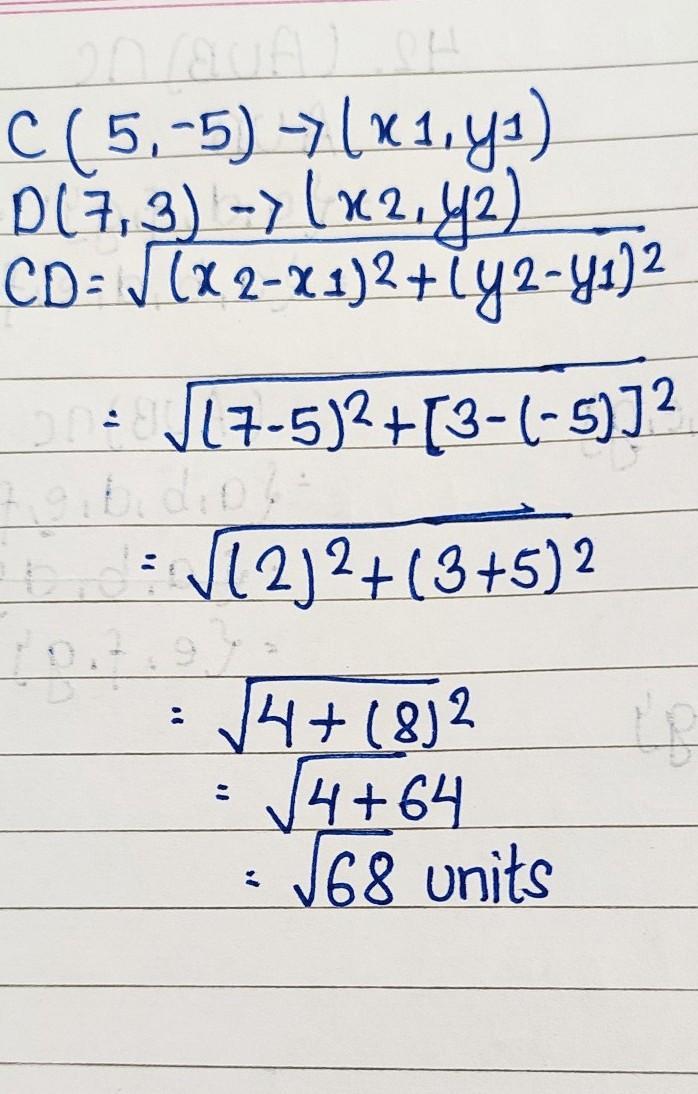 C(5,-5) → (x1,y1)
D(7,3) → (x2,y2)
CD=√(x2-x1)²+(y2-y1)²
= √(7-5)²+[3-(-5)]²
= √(2)²+(3+5)²
= √4+(8)²
= √4+64
= √68 units